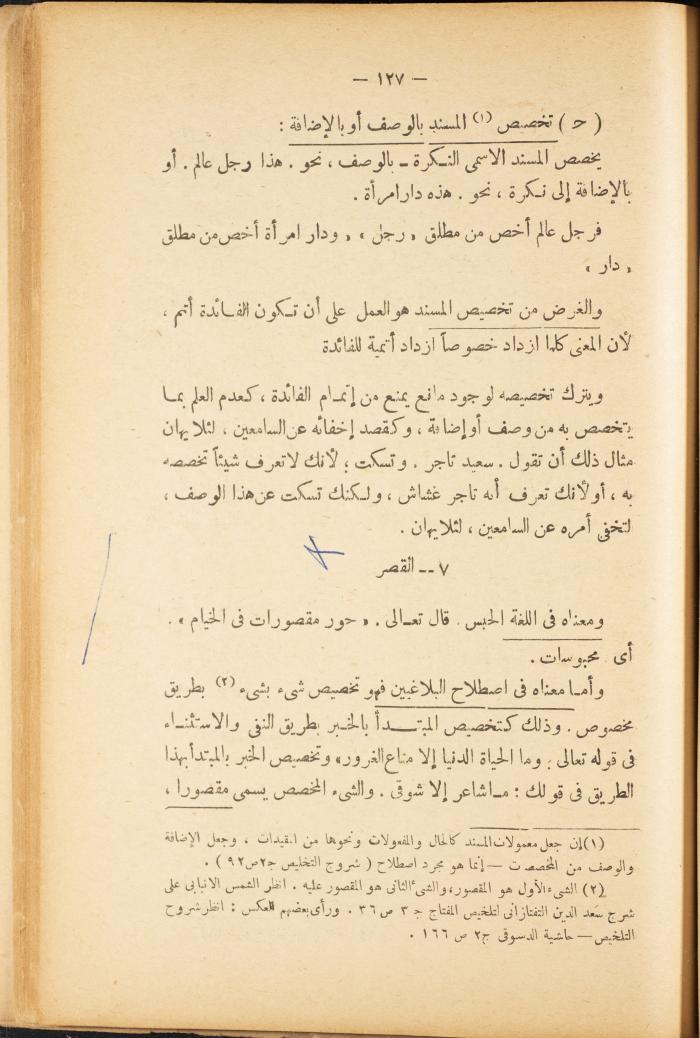 — ١٢٧ —
( ح ) تخصيص (١) المسند بالوصف أو بالإضافة :
يخصص المسند الاسمى النكرة ــ بالوصف ، نحو . هذا رجل عالم . أو
بالإضافة إلى نكرة ، نحو . هذه دار امرأة .
فرجل عالم أخص من مطلق « رجل » ، ودار امرأة أخص من مطلق
« دار »
والغرض من تخصيص المسند هو العمل على أن تكون الفائدة أتم ،
لأن المعنى كلما ازداد خصوصاً ازداد أتمية للفائدة
ويترك تخصيصه لوجود مانع يمنع من إتمام الفائدة ، كعدم العلم بما
يتخصص به من وصف أو إضافة ، وكقصد إخفائه عن السامعين ، لئلا يهان
مثال ذلك أن تقول . سعيد تاجر . وتسكت ؛ لأنك لا تعرف شيئاً تخصصه
به ، أو لأنك تعرف أنه تاجر غشاش ، ولكنك تسكت عن هذا الوصف ،
لتخفى أمره عن السامعين ، لئلا يهان .
٧ ــ القصر
ومعناه فى اللغة الحبس . قال تعالى . « حور مقصورات فى الخيام » .
أى محبوسات .
وأما معناه فى اصطلاح البلاغيين فهو تخصيص شىء بشىء (٢) بطريق
مخصوص . وذلك كتخصيص المبتدأ بالخبر بطريق النفى والاستثناء
فى قوله تعالى : وما الحياة الدنيا إلا متاع الغرور» وتخصيص الخبر بالمبتدأ بهذا
الطريق فى قولك : ما شاعر إلا شوقى . والشىء المخصص يسمى مقصورا ،
(١) إن جعل معمولات المسند كالحال والمفعولات ونحوها من المقيدات ، وجعل الإضافة
والوصف من المخصصات — إنما هو مجرد اصطلاح ( شروح التلخيص ج٢ ص ٩٢ ) .
(٢) الشىء الأول هو المقصور، والشىء الثانى هو المقصور عليه . انظر الشمس الانبابى على
شرح سعد الدين التفتازانى لتلخيص المفتاح ج ٣ ص ٣٦ . ورأى بعضهم العكس : انظر شروح
التلخيص — حاشية الدسوقى ج٢ ص ١٦٦ .